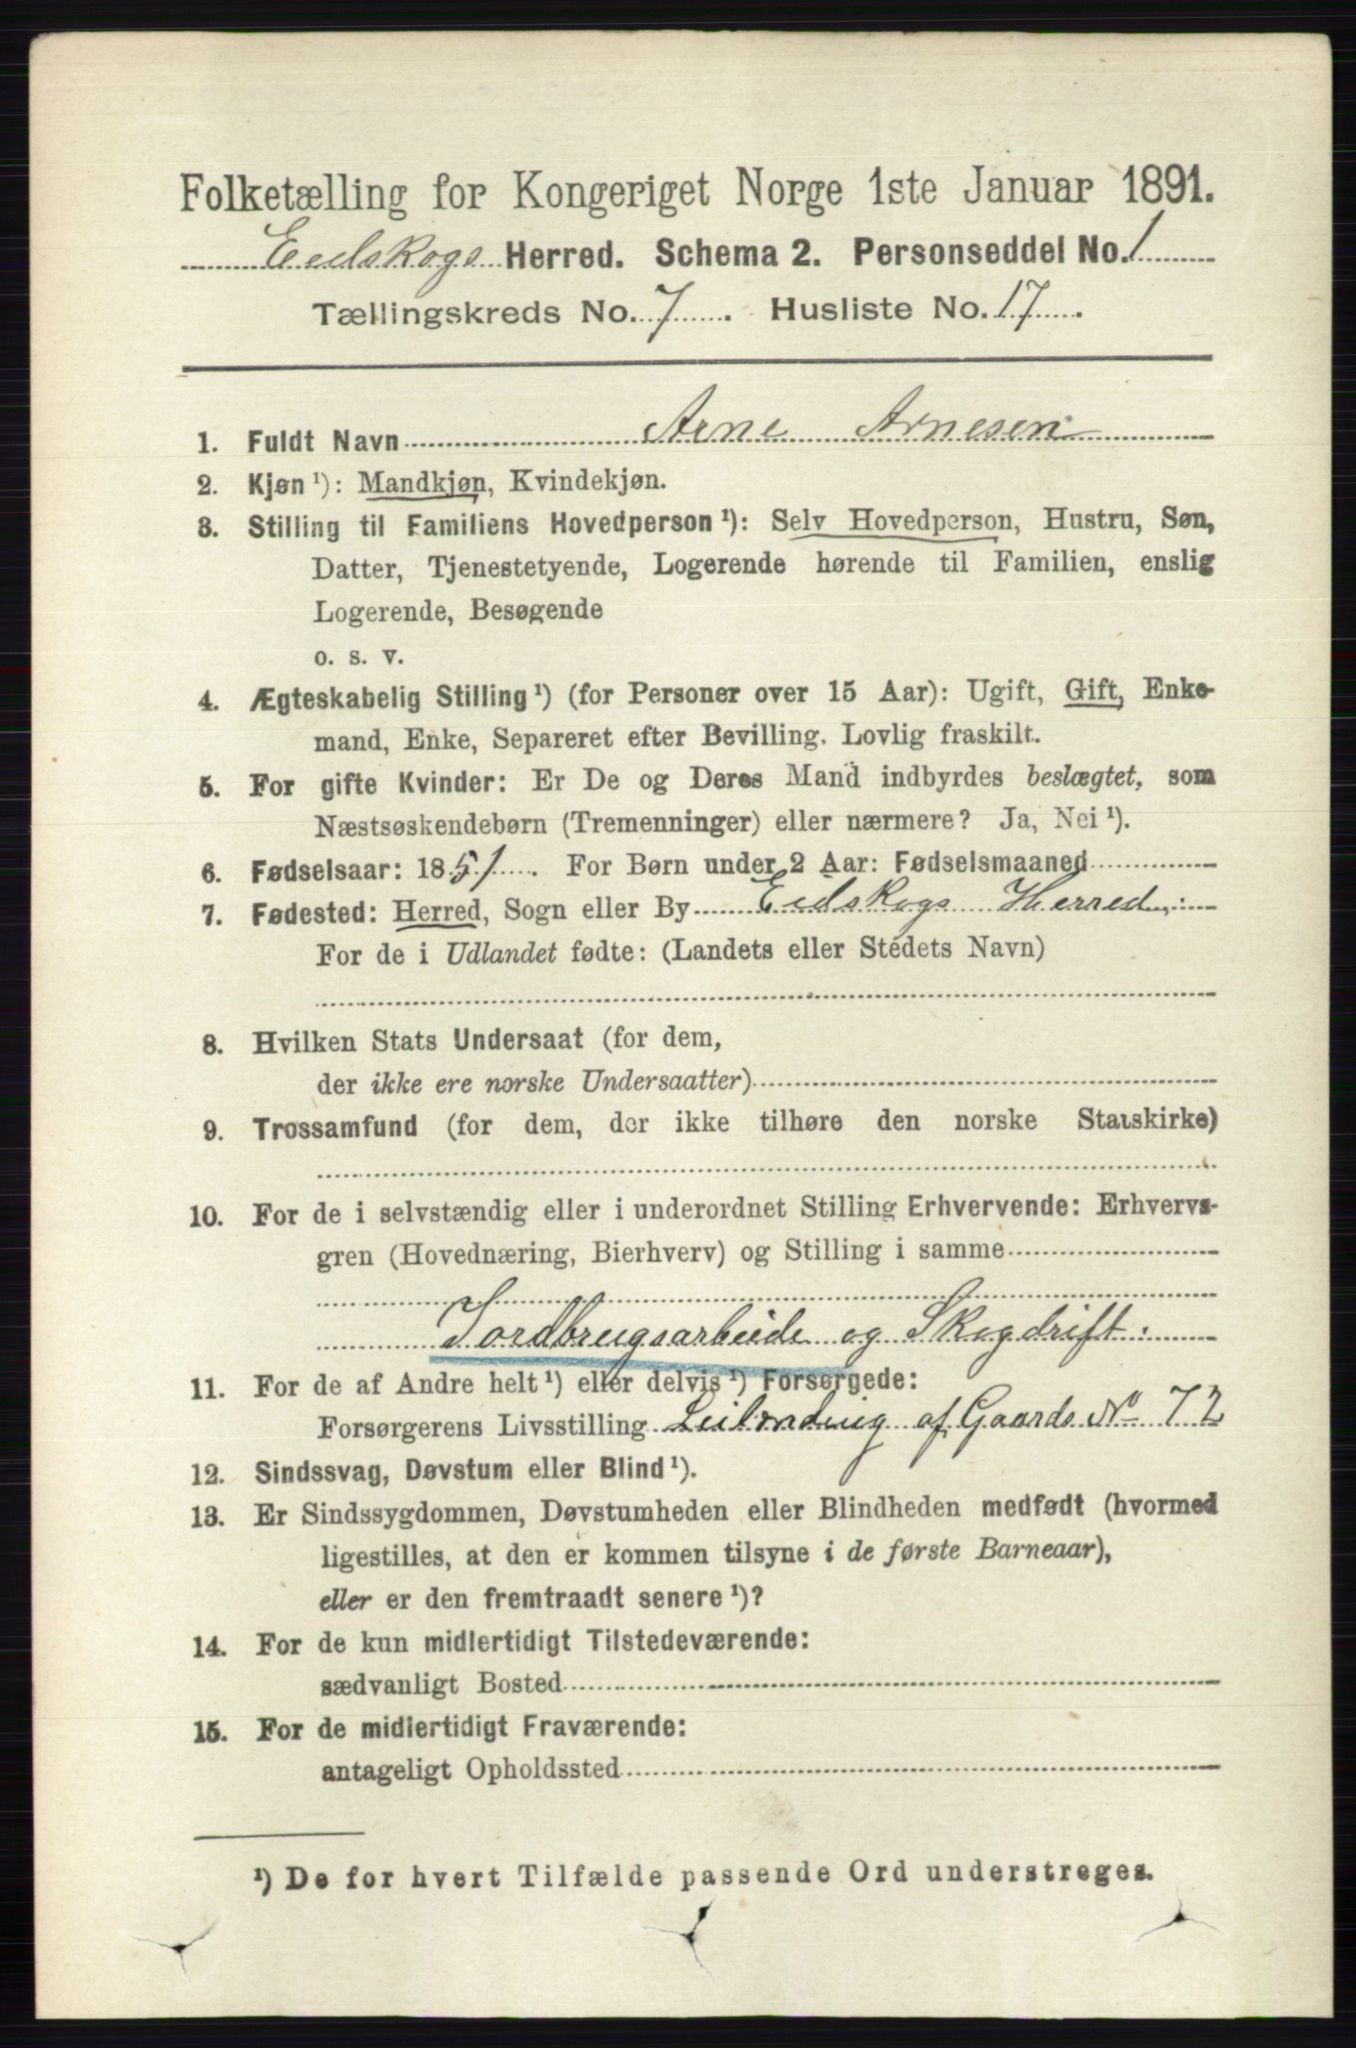 Folketælling for Kongeriget Norge 1ste Januar 1891.
Eidskogs Herred. Schema 2. Personseddel No. 1
Tællingskreds No. 7. Husliste No. 17.
1. Fuldt Navn Arne Arnesen
2. Kjøn ¹): Mandkjøn, Kvindekjøn.
3. Stilling til Familiens Hovedperson ¹): Selv Hovedperson, Hustru, Søn,
Datter, Tjenestetyende, Logerende hørende til Familien, enslig
Logerende, Besøgende
o. s. v.
4. Ægteskabelig Stilling ¹) (for Personer over 15 Aar): Ugift, Gift, Enke-
mand, Enke, Separeret efter Bevilling. Lovlig fraskilt.
5. For gifte Kvinder: Er De og Deres Mand indbyrdes beslægtet, som
Næstsøskendebørn (Tremenninger) eller nærmere? Ja, Nei ¹).
6. Fødselsaar: 1851. For Børn under 2 Aar: Fødselsmaaned
7. Fødested: Herred, Sogn eller By Eidskogs Herred.
For de i Udlandet fødte: (Landets eller Stedets Navn)
8. Hvilken Stats Undersaat (for dem,
der ikke ere norske Undersaatter)
9. Trossamfund (for dem, der ikke tilhøre den norske Statskirke)
10. For de i selvstændig eller i underordnet Stilling Erhvervende: Erhvervs-
gren (Hovednæring, Bierhverv) og Stilling i samme
Jordbrugsarbeide og Skogdrift.
11. For de af Andre helt ¹) eller delvis ¹) Forsørgede:
Forsørgerens Livsstilling Leilending af Gaards No 72
12. Sindssvag, Døvstum eller Blind ¹).
13. Er Sindssygdommen, Døvstumheden eller Blindheden medfødt (hvormed
ligestilles, at den er kommen tilsyne i de første Barneaar),
eller er den fremtraadt senere ¹)?
14. For de kun midlertidigt Tilstedeværende:
sædvanligt Bosted
15. For de midlertidigt Fraværende:
antageligt Opholdssted
¹) De for hvert Tilfælde passende Ord understreges.